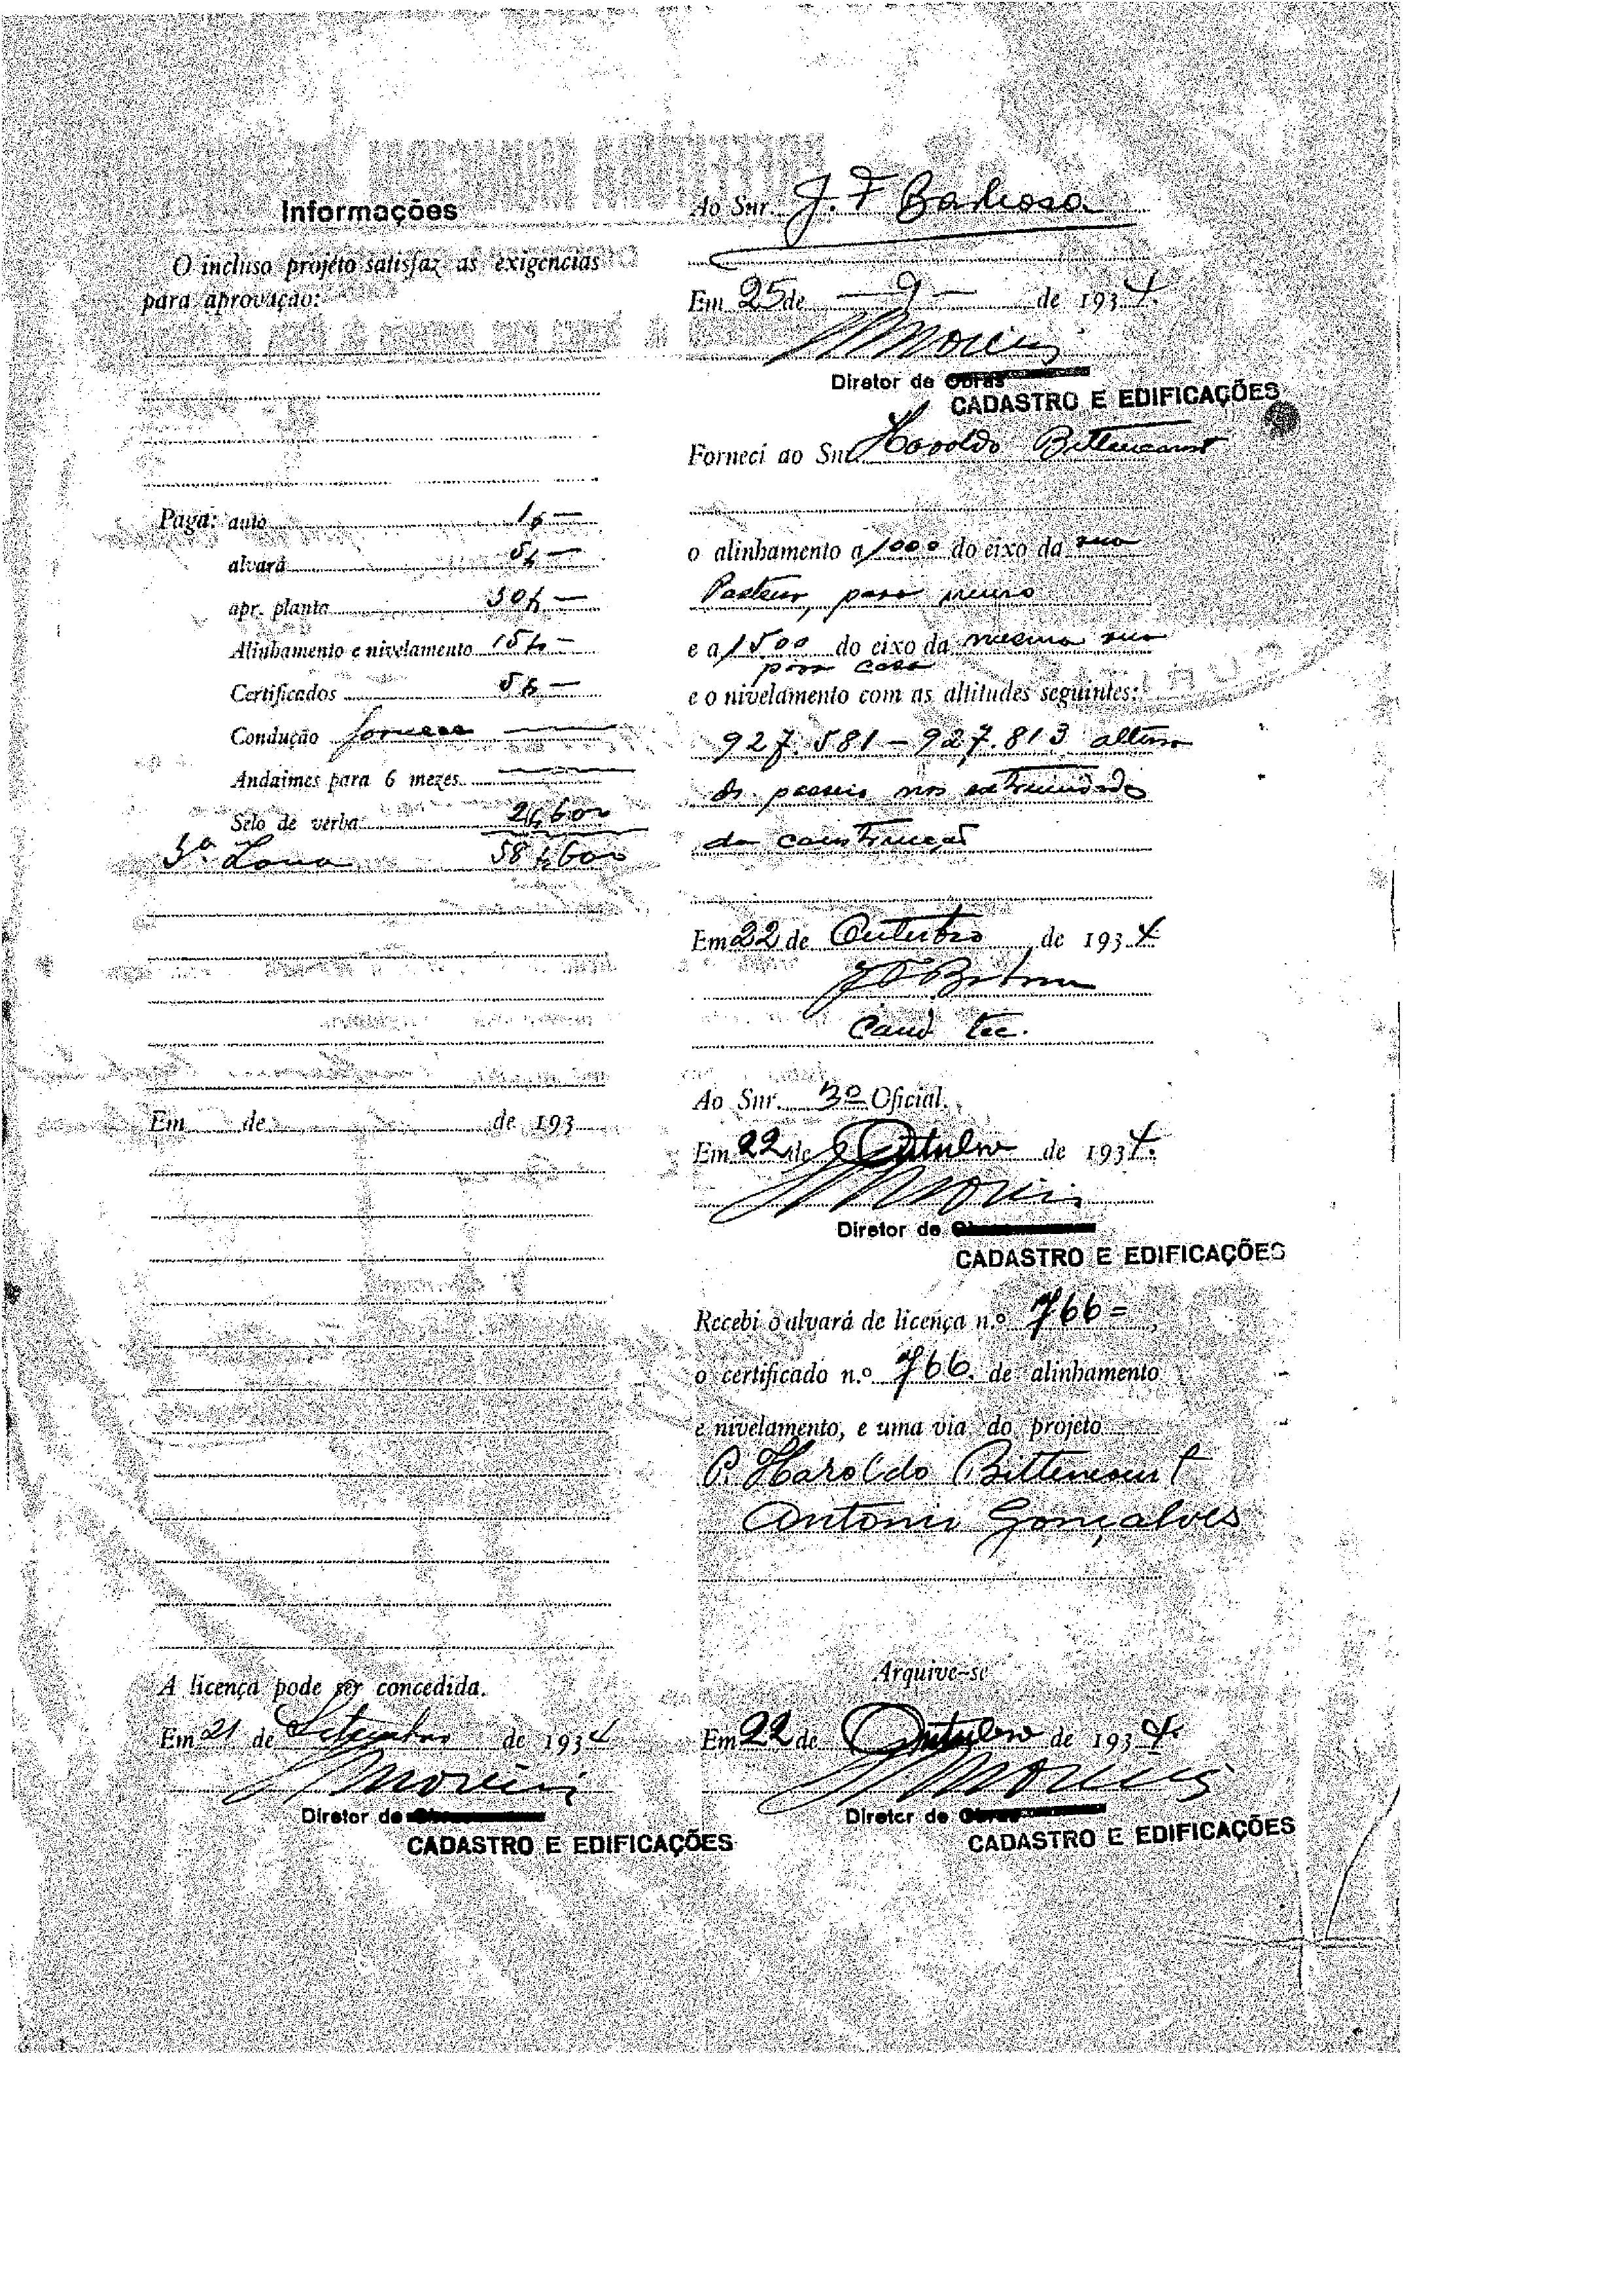 Informações
O incluso projéto satisfaz as exigencias
para aprovação:
Paga: auto 1$—
alvará 5$—
apr. planta 30$—
Alinhamento e nivelamento 15$—
Certificados 5$—
Condução fornece —
Andaimes para 6 mezes —
Selo de verba 2$600
3ª Zona 58$600
Em de de 193
A licença pode ser concedida.
Em 21 de Setembro de 1934
Diretor de
CADASTRO E EDIFICAÇÕES
Ao Snr. J. F Barbosa
Em 25 de — 9 — de 1934.
Diretor de Obras
CADASTRO E EDIFICAÇÕES
Forneci ao Snr. Haroldo Bittencourt
o alinhamento a 1000 do eixo da rua
Pasteur, para muro
e a 1500 do eixo da mesma rua
para casa
e o nivelamento com as altitudes seguintes:
927.581 — 927.813 altura
do passeio nas extremidades
da construcção
Em 22 de Outubro de 1934
Cond tec.
Ao Snr. 3º Oficial.
Em 22 de Outubro de 1934.
Diretor de
CADASTRO E EDIFICAÇÕES
Recebi o alvará de licença n.º 766=,
o certificado n.º 766. de alinhamento
e nivelamento, e uma via do projéto
P. Haroldo Bittencourt
Antonio Gonçalves
Arquive-se
Em 22 de Outubro de 1934.
Diretor de Obras
CADASTRO E EDIFICAÇÕES